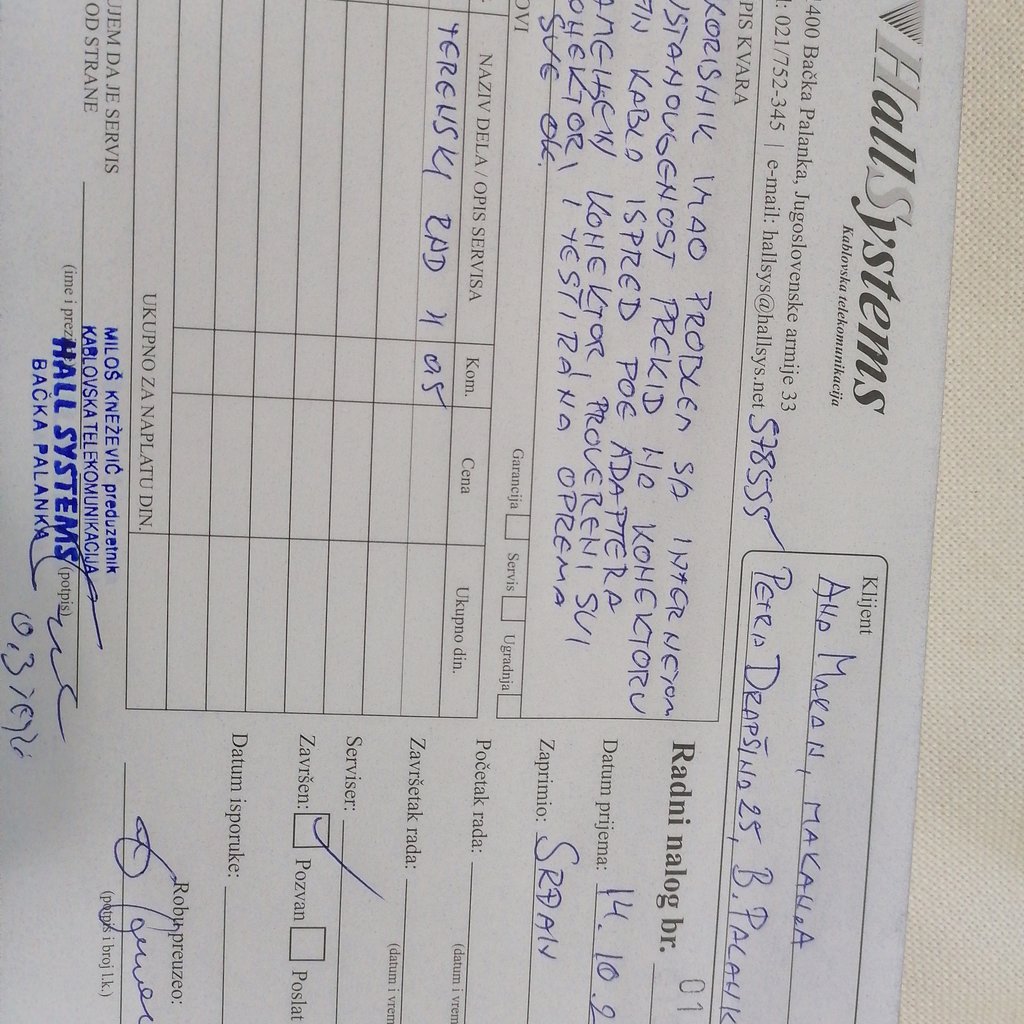 HallSystems
Kablovska telekomunikacija
400 Bačka Palanka, Jugoslovenske armije 33
: 021/752-345 | e-mail: hallsys@hallsys.net
Klijent
MAKANJA
PETRA DRAPŠINA 25, B. PALANK
PIS KVARA
KORISNIK IMAO PROBLEM SA INTERNETOM
USTANOVLJENOST PREKID NA KONEKTORU
KABLO ISPRED POE ADAPTERA
AMENJEN KONEKTOR PROVERENI SVI
ONEKTORI I TESTIRANA OPREMA
SVE OK.
OVI
Garancija Servis Ugradnja
NAZIV DELA / OPIS SERVISA Kom. Cena Ukupno din.
TERENSKI RAD
UKUPNO ZA NAPLATU DIN.
Radni nalog br. 01
Datum prijema: 14. 10. 2
Zaprimio: SRĐAN
Početak rada:
(datum i vrem
Završetak rada:
(datum i vrem
Serviser:
Završen: Pozvan Poslat
Datum isporuke:
UJEM DA JE SERVIS
OD STRANE
(ime i prez
(potpis)
MILOŠ KNEŽEVIĆ preduzetnik
KABLOVSKA TELEKOMUNIKACIJA
HALL SYSTEMS
BAČKA PALANKA
Robu preuzeo:
(potpis i broj l.k.)